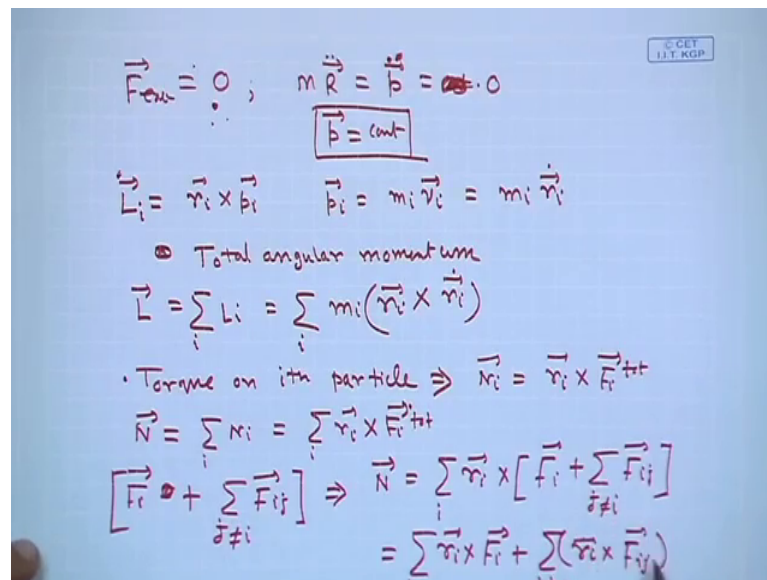 © CET
I.I.T. KGP
\vec{F}_{ext} = 0 ; m\ddot{\vec{R}} = \dot{\vec{p}} = 0
\vec{p} = cont
\vec{L}_i = \vec{r}_i × \vec{p}_i    \vec{p}_i = m_i \vec{v}_i = m_i \dot{\vec{r}}_i
Total angular momentum
\vec{L} = \sum_i L_i = \sum_i m_i (\vec{r}_i × \dot{\vec{r}}_i)
. Torque on ith particle ⇒ \vec{N}_i = \vec{r}_i × \vec{F}_i^{tot}
\vec{N} = \sum_i N_i = \sum_i \vec{r}_i × \vec{F}_i^{tot}
[\vec{F}_i + \sum_{j≠i} \vec{F}_{ij}] ⇒ \vec{N} = \sum_i \vec{r}_i × [\vec{F}_i + \sum_{j≠i} \vec{F}_{ij}]
= \sum \vec{r}_i × \vec{F}_i + \sum (\vec{r}_i × \vec{F}_{ij})